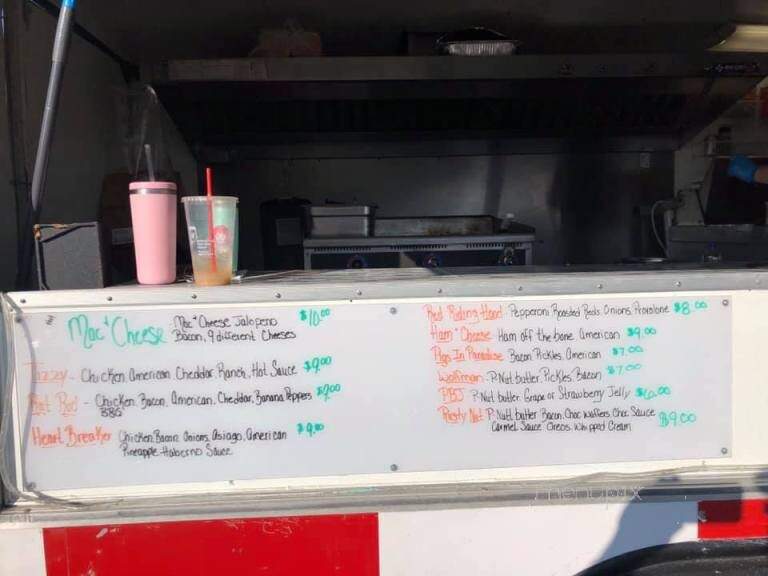 Mac & Cheese Mac & Cheese Jalapeno $10.00
Bacon, 9 different Cheeses
Tizzy - Chicken American Cheddar, Ranch, Hot Sauce $9.00
Rat Rod - Chicken, Bacon, American, Cheddar, Banana Peppers $9.00
BBQ
Heart Breaker Chicken Bacon Onions, Asiago, American $9.00
Pineapple-Haberno Sauce
Red Riding Hood - Pepperoni, Roasted Reds, Onions, Provolone $8.00
Ham & Cheese - Ham off the bone, American $9.00
Pigs In Paradise Bacon, Pickles, American $7.00
Wolfman - P-Nut butter, Pickles, Bacon $7.00
PBJ P-Nut butter Grape or Strawberry Jelly $6.00
P-Nut butter Bacon, Choc Waffers, Choc Sauce $9.00
Carmel Sauce Oreos, Whipped Cream
menupix